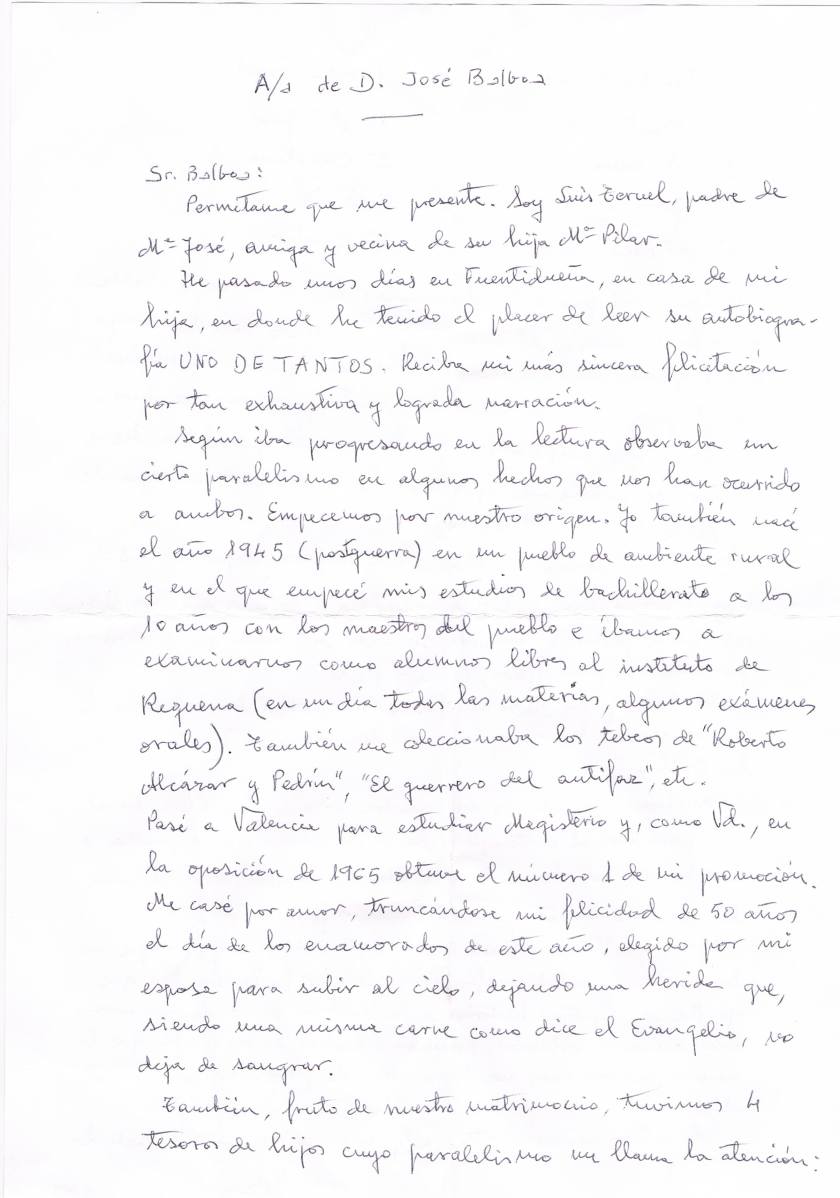 A/a de D. José Balboa
Sr. Balboa:
Permítame que me presente. Soy Luis Teruel, padre de
Mª José, amiga y vecina de su hija Mª Pilar.
He pasado unos días en Fuentidueña, en casa de mi
hija, en donde he tenido el placer de leer su autobiogra-
fía UNO DE TANTOS. Reciba mi más sincera felicitación
por tan exhaustiva y lograda narración.
Según iba progresando en la lectura observaba un
cierto paralelismo en algunos hechos que nos han ocurrido
a ambos. Empecemos por nuestro origen. Yo también nací
el año 1945 (postguerra) en un pueblo de ambiente rural
y en el que empecé mis estudios de bachillerato a los
10 años con los maestros del pueblo e íbamos a
examinarnos como alumnos libres al instituto de
Requena (en un día todas las materias, algunos exámenes
orales). También me coleccionaba los tebeos de "Roberto
Alcázar y Pedrín", "El guerrero del antifaz", etc.
Pasé a Valencia para estudiar Magisterio y, como Vd., en
la oposición de 1965 obtuve el número 1 de mi promoción.
Me casé por amor, truncándose mi felicidad de 50 años
el día de los enamorados de este año, elegido por mi
esposa para subir al cielo, dejando una herida que,
siendo una misma carne como dice el Evangelio, no
deja de sangrar.
También, fruto de nuestro matrimonio, tuvimos 4
tesoros de hijos cuyo paralelismo me llama la atención: